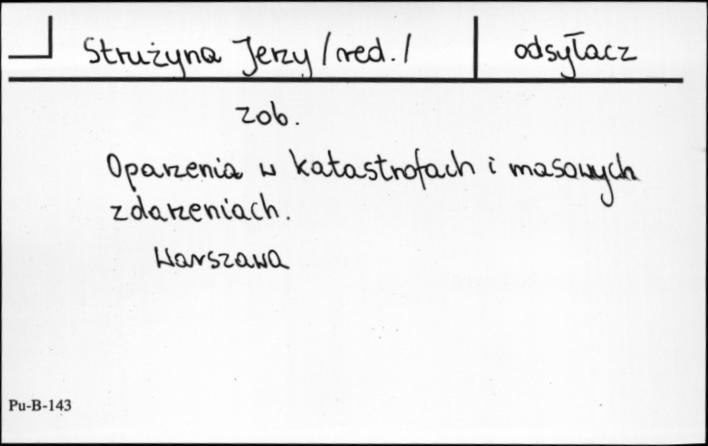 Strużyna Jerzy /red./ odsyłacz
zob.
Oparzenia w katastrofach i masowych
zdarzeniach.
Warszawa
Pu-B-143